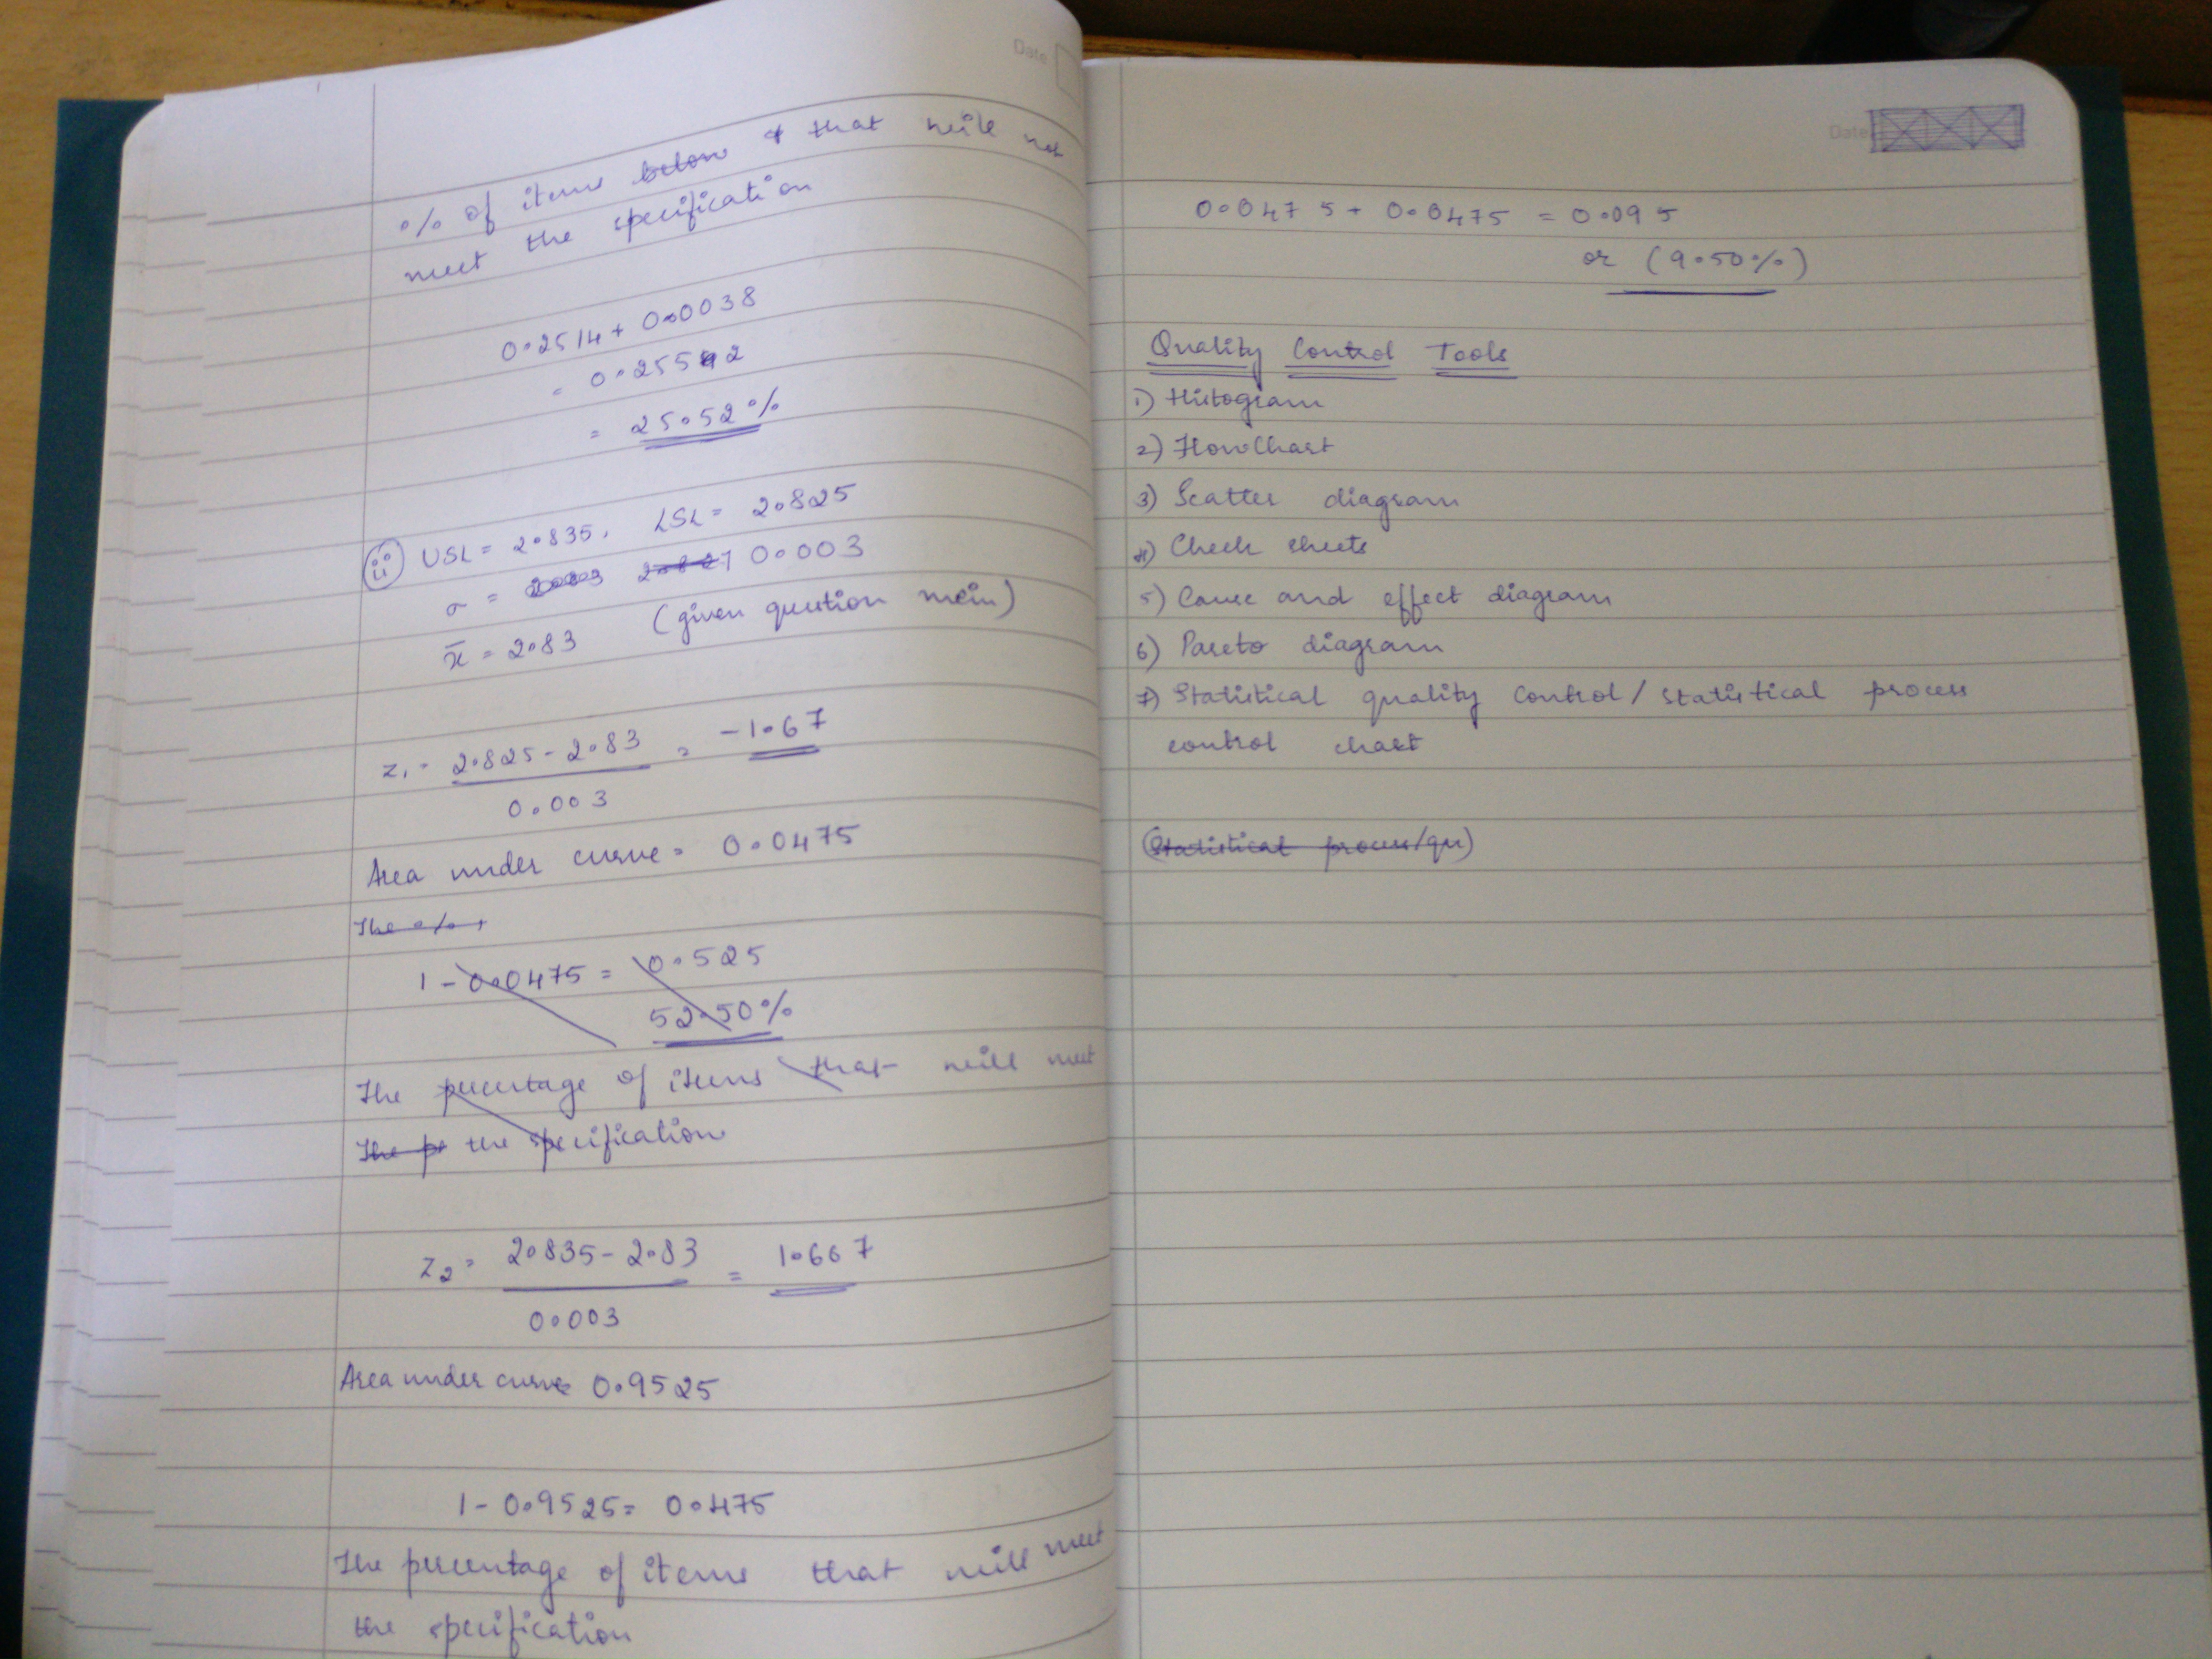 Date
% of items below & that will not
meet the specification
0.2514 + 0.0038
= 0.2552
= 25.52%
(ii) USL = 2.835, LSL = 2.825
σ = 0.003
x̄ = 2.83 (given qustion mein)
z₁ = 2.825 - 2.83 = -1.67
0.003
Area under curve = 0.0475
The %
1 - 0.0475 = 0.525
52.50%
The percentage of items that will meet
The pe the specification
z₂ = 2.835 - 2.83 = 1.667
0.003
Area under curve 0.9525
1 - 0.9525 = 0.475
The percentage of items that will meet
the specification
Date
0.0475 + 0.0475 = 0.095
or (9.50%)
Quality Control Tools
1) Histogram
2) FlowChart
3) Scatter diagram
4) Check sheets
5) Cause and effect diagram
6) Pareto diagram
7) Statistical quality control / statistical process
control chart
(Statistical process/qu)